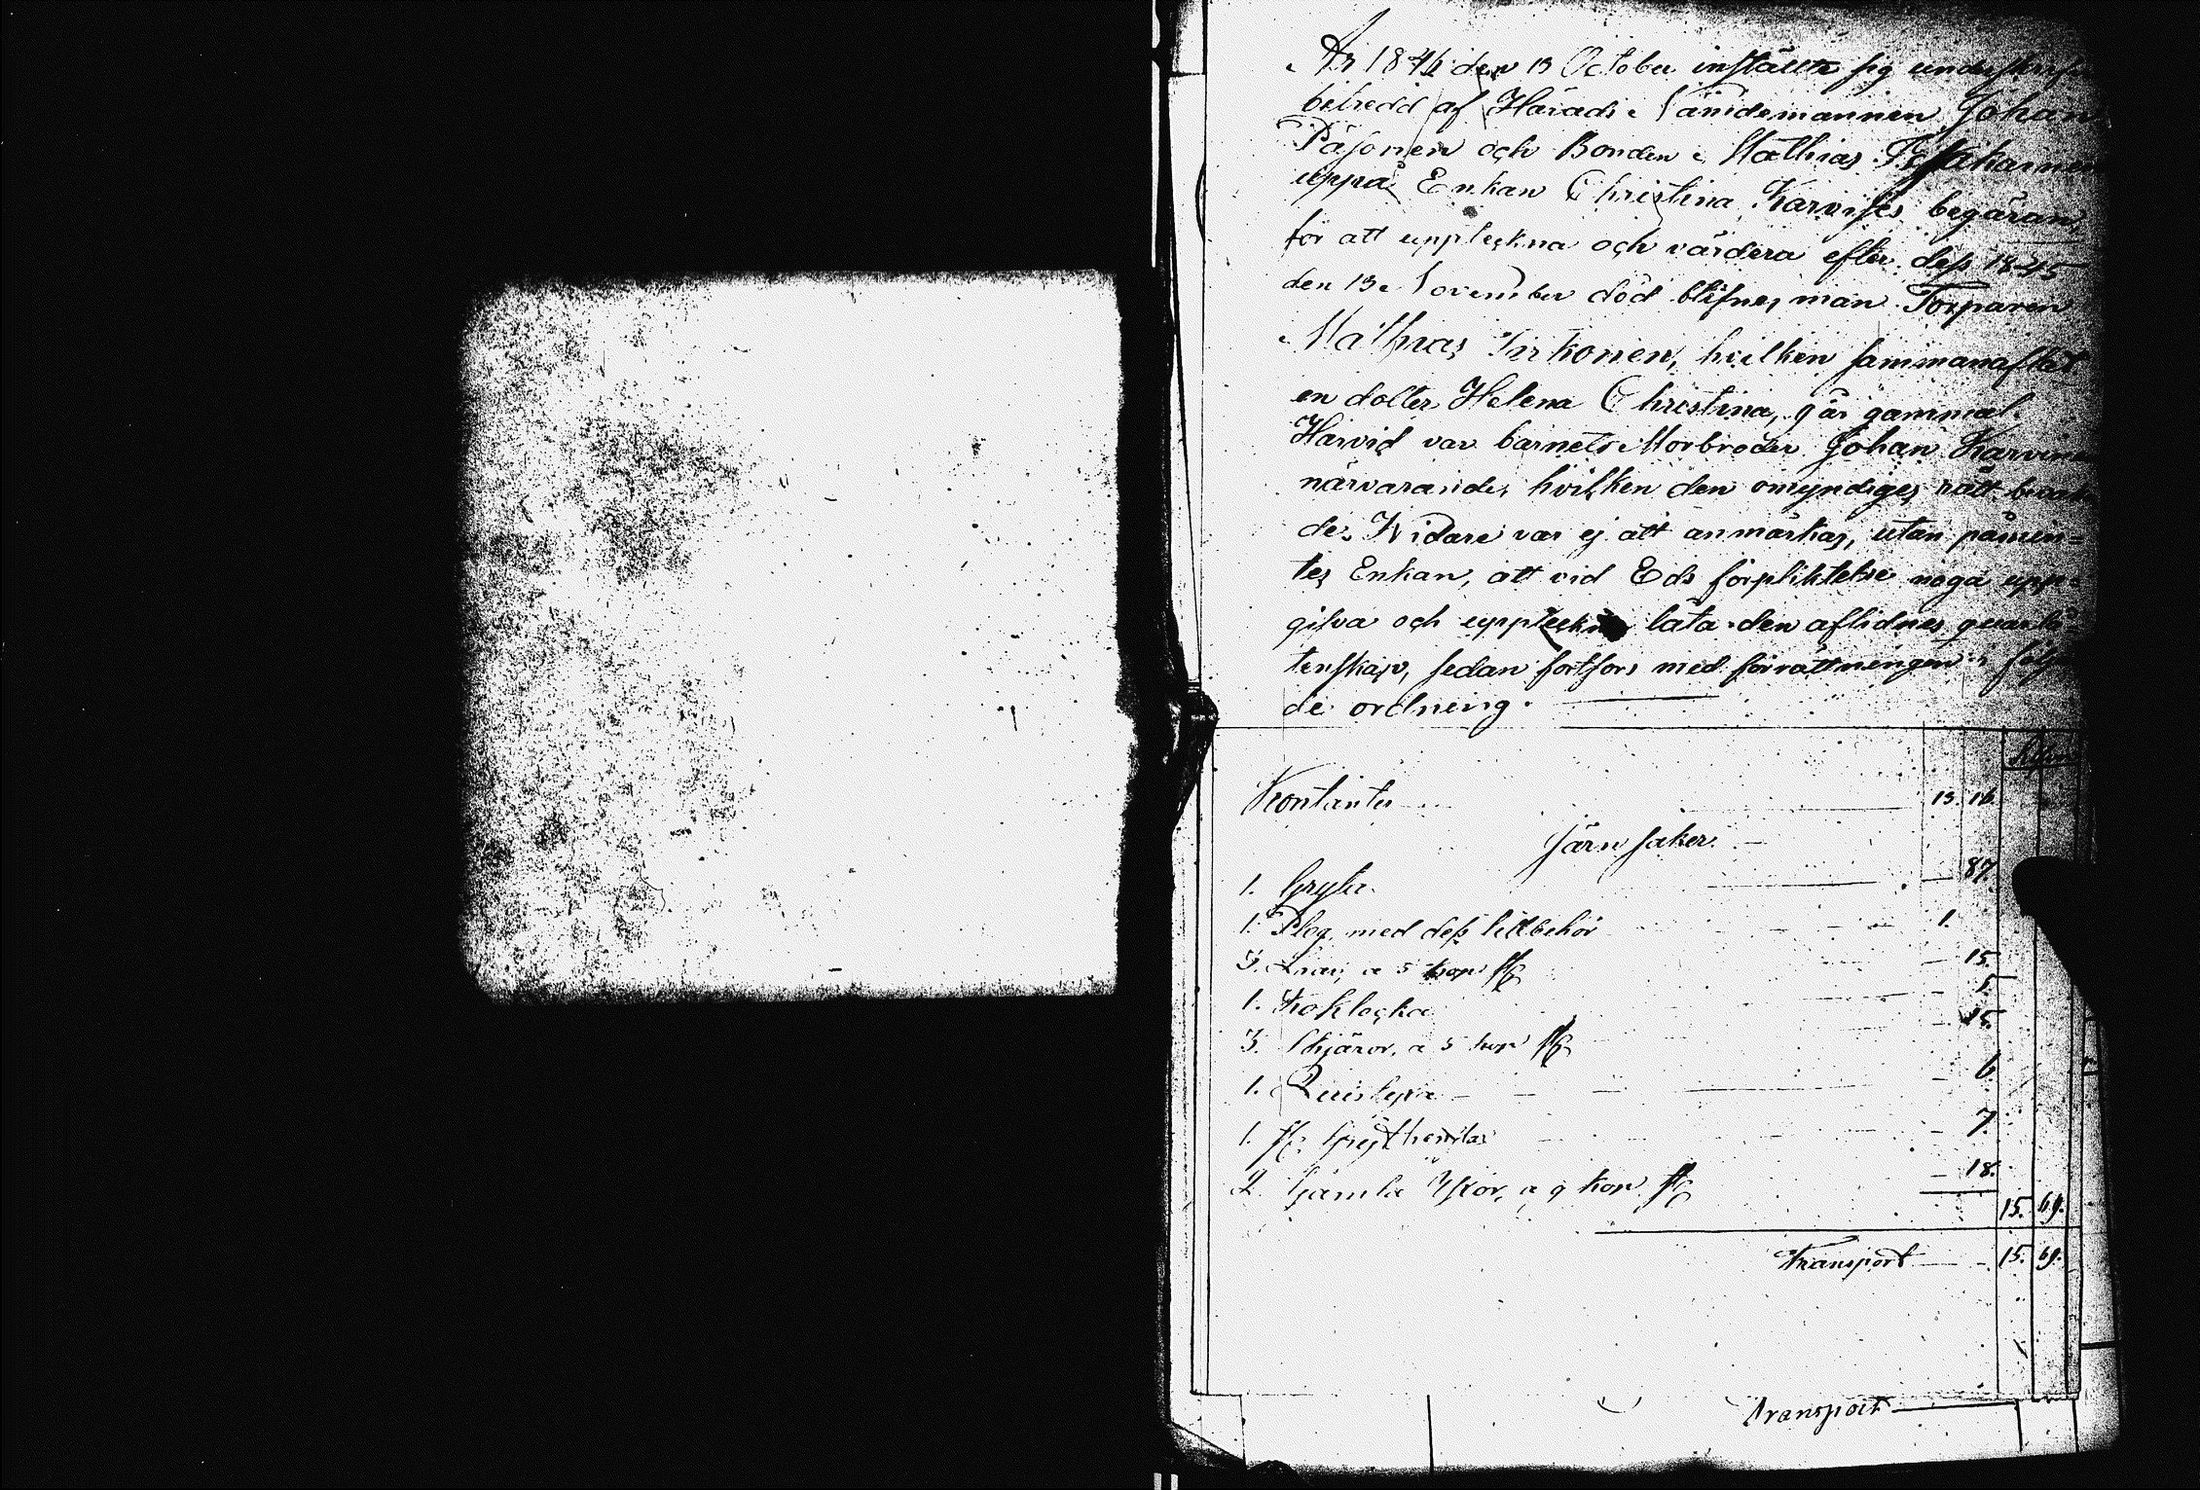 År 1846 den 13 October inställte sig underskrif
beträdd af Härads Nämdemannen Johan
Päjonen och Bonden Mathias
uppå Enkan Christina Karvises begäran,
för att uppteckna och värdera efter dess 1845
den 13 November död blifne man Torparen
Mathias Hirkonen, hvilken sammanaflat
en dotter Helena Christina, 9 år gammal.
Härvid var barnets Morbroder Johan Karvinen
närvarande, hvilken den omyndiges rätt bevaka
de. Vidare var ej att anmärkas, utan påmin=
tes Enkan, att vid Eds förpliktelse noga upp=
gifva och uppteckna låta den aflidnes quarlå=
tenskap, sedan fortfors med förrättningen i följ
de ordning.
Kontanter 13. 16
Järn saker.
1. Gryta 87.
1. Plog med dess tillbehör 1.
3. Liar, a 5 kop st 15.
1. Koklocka 5
3. Skjäror, a 5 kop st 15.
1. 6
1. st. 7.
2. Gamla Yxor, a 9 kop st 18.
15. 69.
Transport 15. 69.
Transport